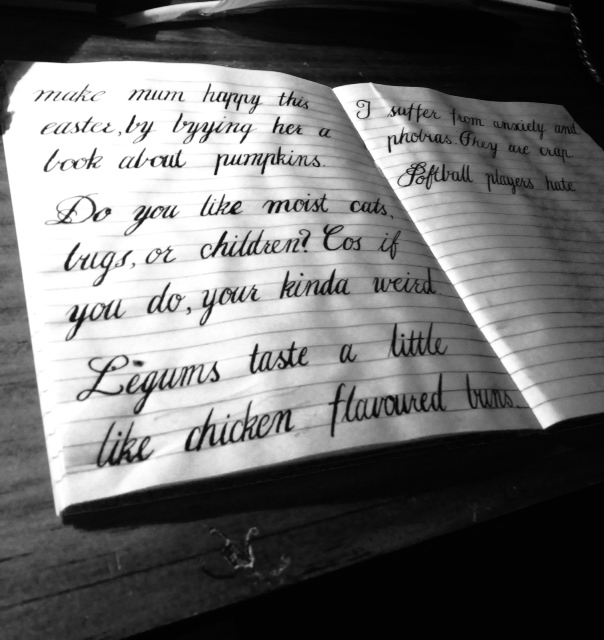 make mum happy this
easter, by byying her a
book about pumpkins.
Do you like moist cats,
bugs, or children? Cos if
you do, your kinda weird
Legums taste a little
like chicken flavoured buns.
I suffer from anxiety and
phobias. They are crap.
Softball players hate